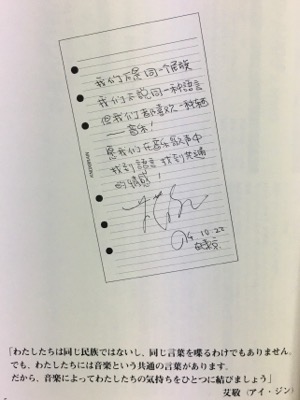 我们不是同一个民族
我们不说同一种語言
但我们都喜欢一种
——音乐!
愿我们在音乐歌声中
找到語言 找到共通
的情感!
10.22
「わたしたちは同じ民族ではないし、同じ言葉を喋るわけでもありません。
でも、わたしたちには音楽という共通の言葉があります。
だから、音楽によってわたしたちの気持ちをひとつに結びましょう」
艾敬(アイ・ジン)